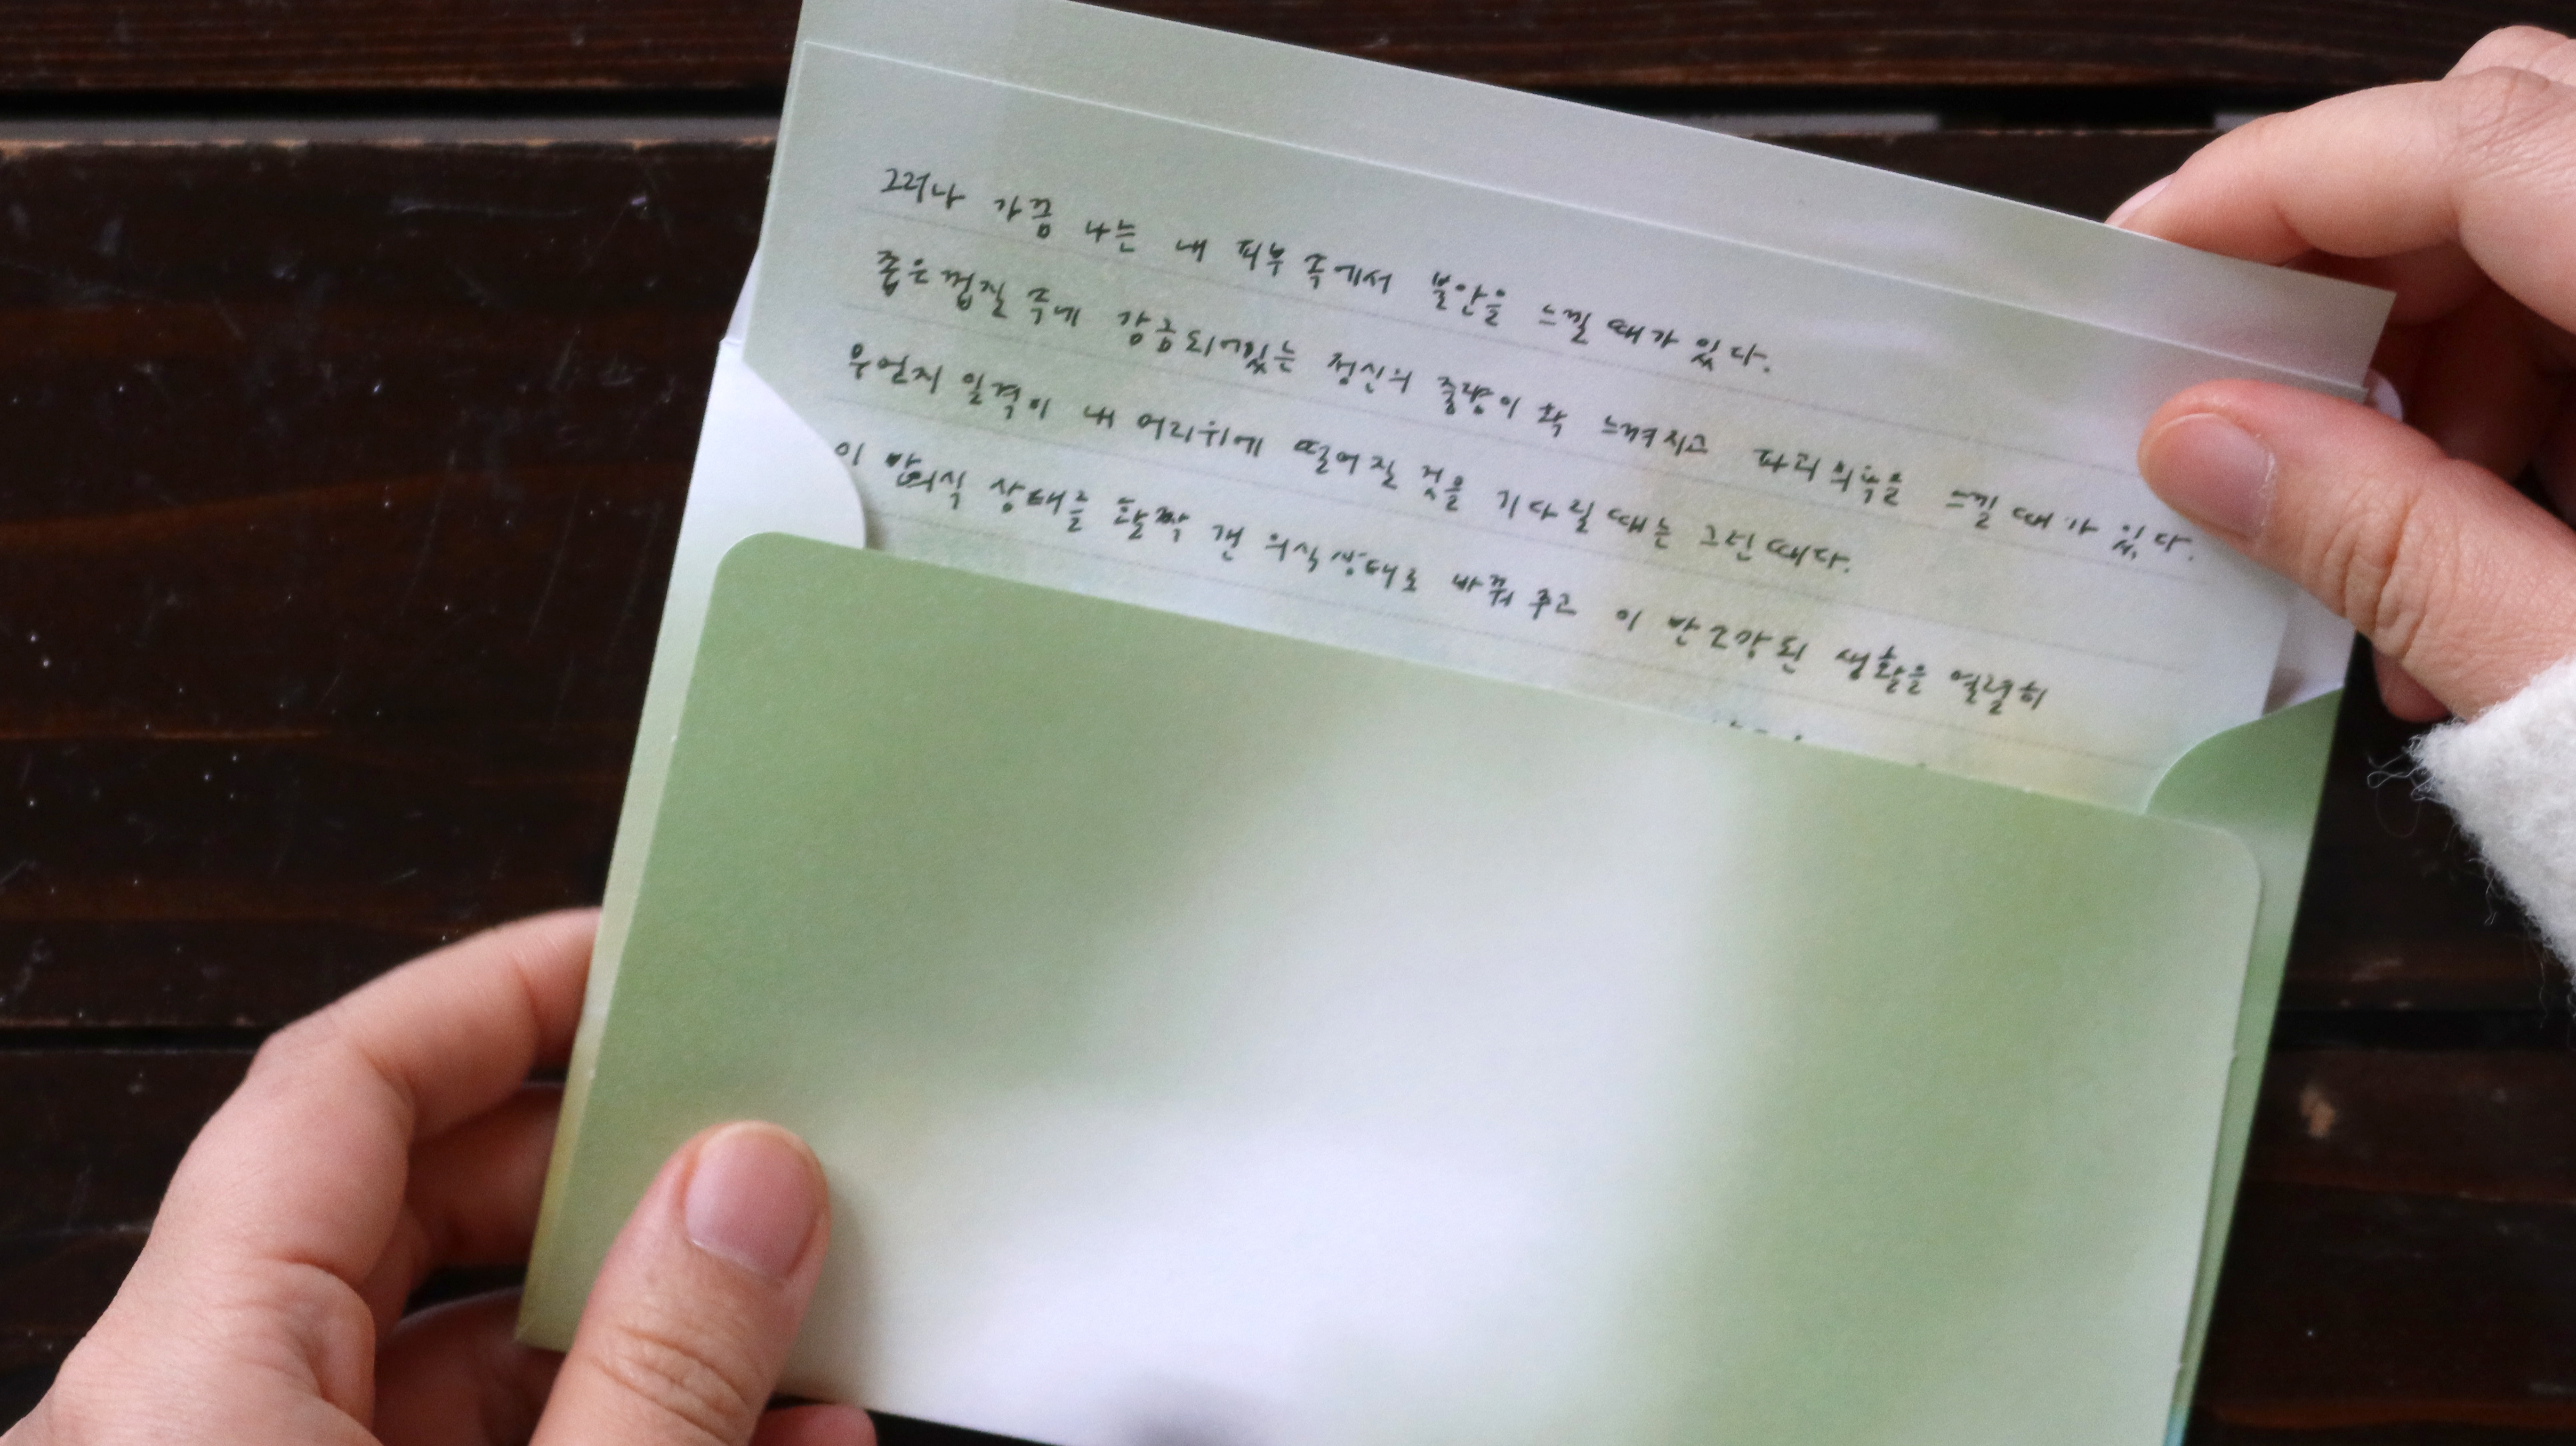 그러나 가끔 나는 내 피부 속에서 불안을 느낄 때가 있다.
좁은 껍질 속에 감금되어있는 정신의 중량이 확 느껴지고 파괴의욕을 느낄 때가 있다.
우언지 일격이 내 머리위에 떨어질 것을 기다릴 때는 그런 때다.
이 반의식 상태를 활짝 갠 의식상태로 바꿔 주고 이 반 모강된 생활을 열렬히